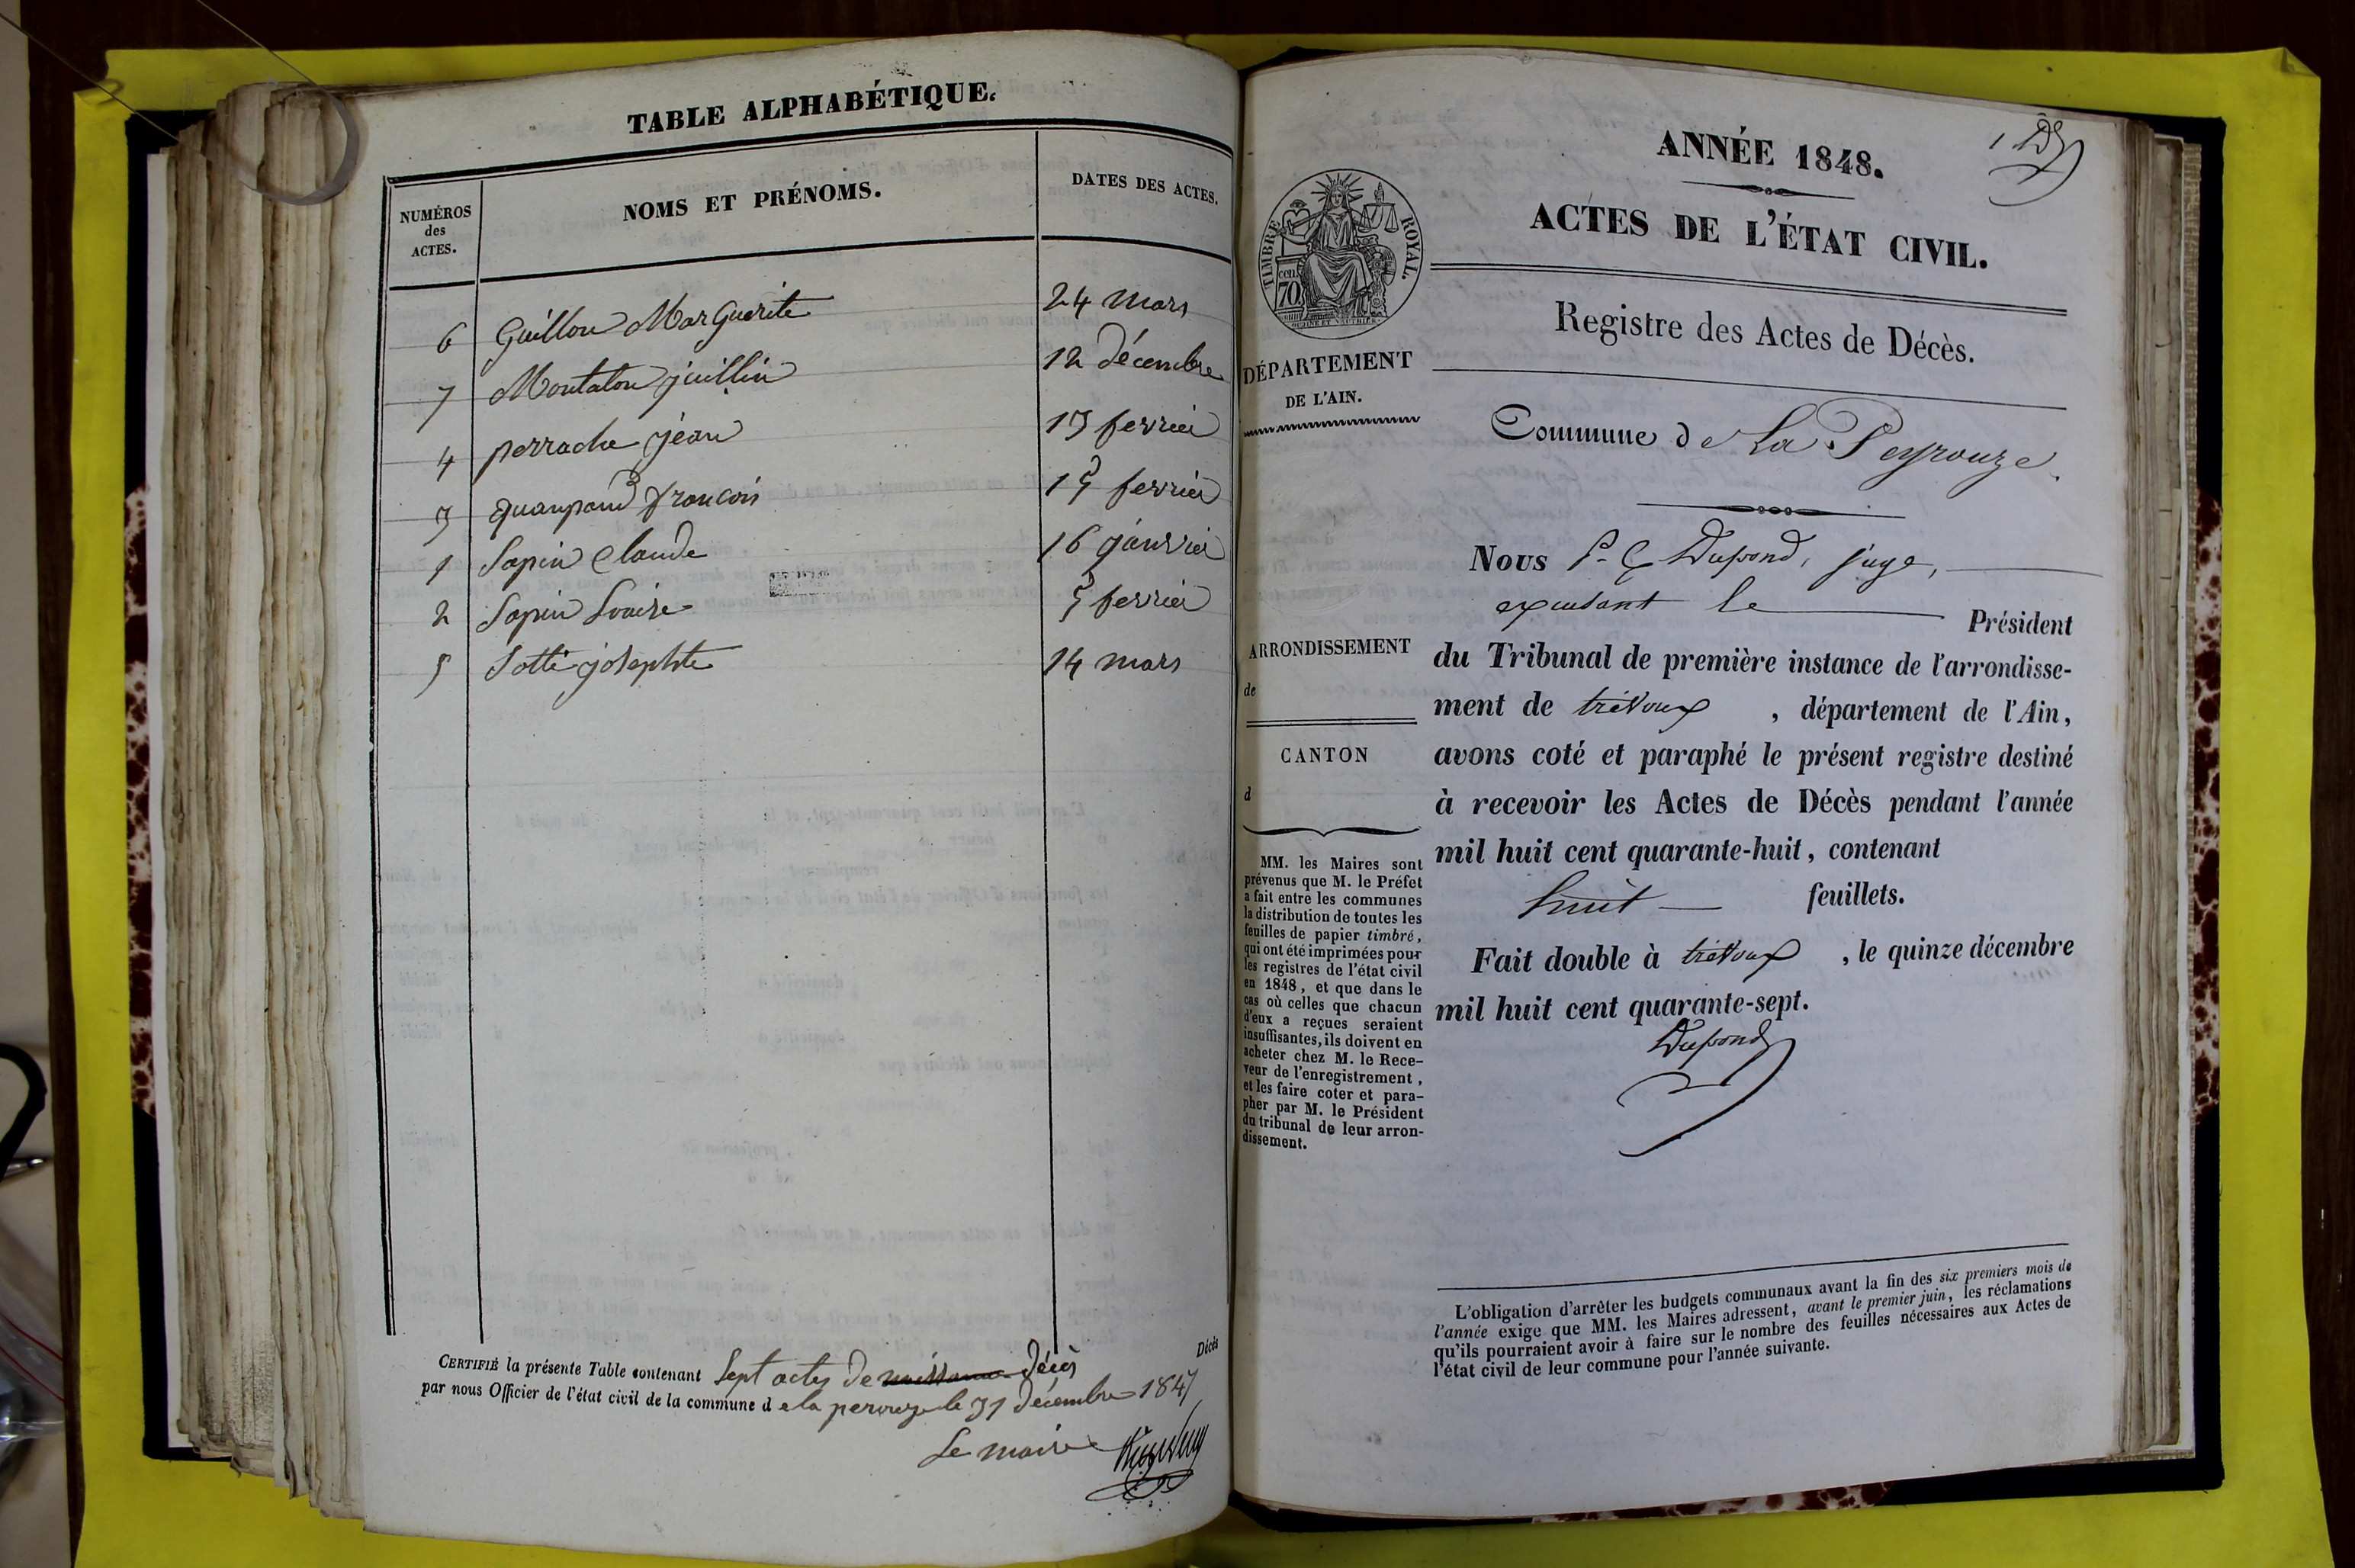 TABLE ALPHABÉTIQUE.
NUMÉROS
des
ACTES.
NOMS ET PRÉNOMS.
DATES DES ACTES.
6 Guillon MarGuerite 24 mars
7 Montalon 12 décembre
4 perrache jean 13 fevrier
3 françois 15 fevrier
1 Sapin Claude 16 janvier
2 Sapin Louise 5 fevrier
5 josephte 14 mars
Décès
CERTIFIÉ la présente Table contenant Sept actes de naissance décès
par nous Officier de l'état civil de la commune d e la le 31 décembre 1847
Le maire
1
ANNÉE 1848.
ACTES DE L'ÉTAT CIVIL.
TIMBRE ROYAL.
cen.
70
Registre des Actes de Décès.
DÉPARTEMENT
DE L'AIN.
Commune de La Peyrouze
Nous P. Dupond, juge,
le Président
ARRONDISSEMENT
de
du Tribunal de première instance de l'arrondisse-
ment de trévoux , département de l'Ain,
CANTON
d
avons coté et paraphé le présent registre destiné
à recevoir les Actes de Décès pendant l'année
mil huit cent quarante-huit, contenant
huit feuillets.
Fait double à trévoux , le quinze décembre
mil huit cent quarante-sept.
Dupond
MM. les Maires sont
prévenus que M. le Préfet
a fait entre les communes
la distribution de toutes les
feuilles de papier timbré,
qui ont été imprimées pour
les registres de l'état civil
en 1848, et que dans le
cas où celles que chacun
d'eux a reçues seraient
insuffisantes, ils doivent en
acheter chez M. le Rece-
veur de l'enregistrement,
et les faire coter et para-
pher par M. le Président
du tribunal de leur arron-
dissement.
L'obligation d'arrêter les budgets communaux avant la fin des six premiers mois de
l'année exige que MM. les Maires adressent, avant le premier juin, les réclamations
qu'ils pourraient avoir à faire sur le nombre des feuilles nécessaires aux Actes de
l'état civil de leur commune pour l'année suivante.